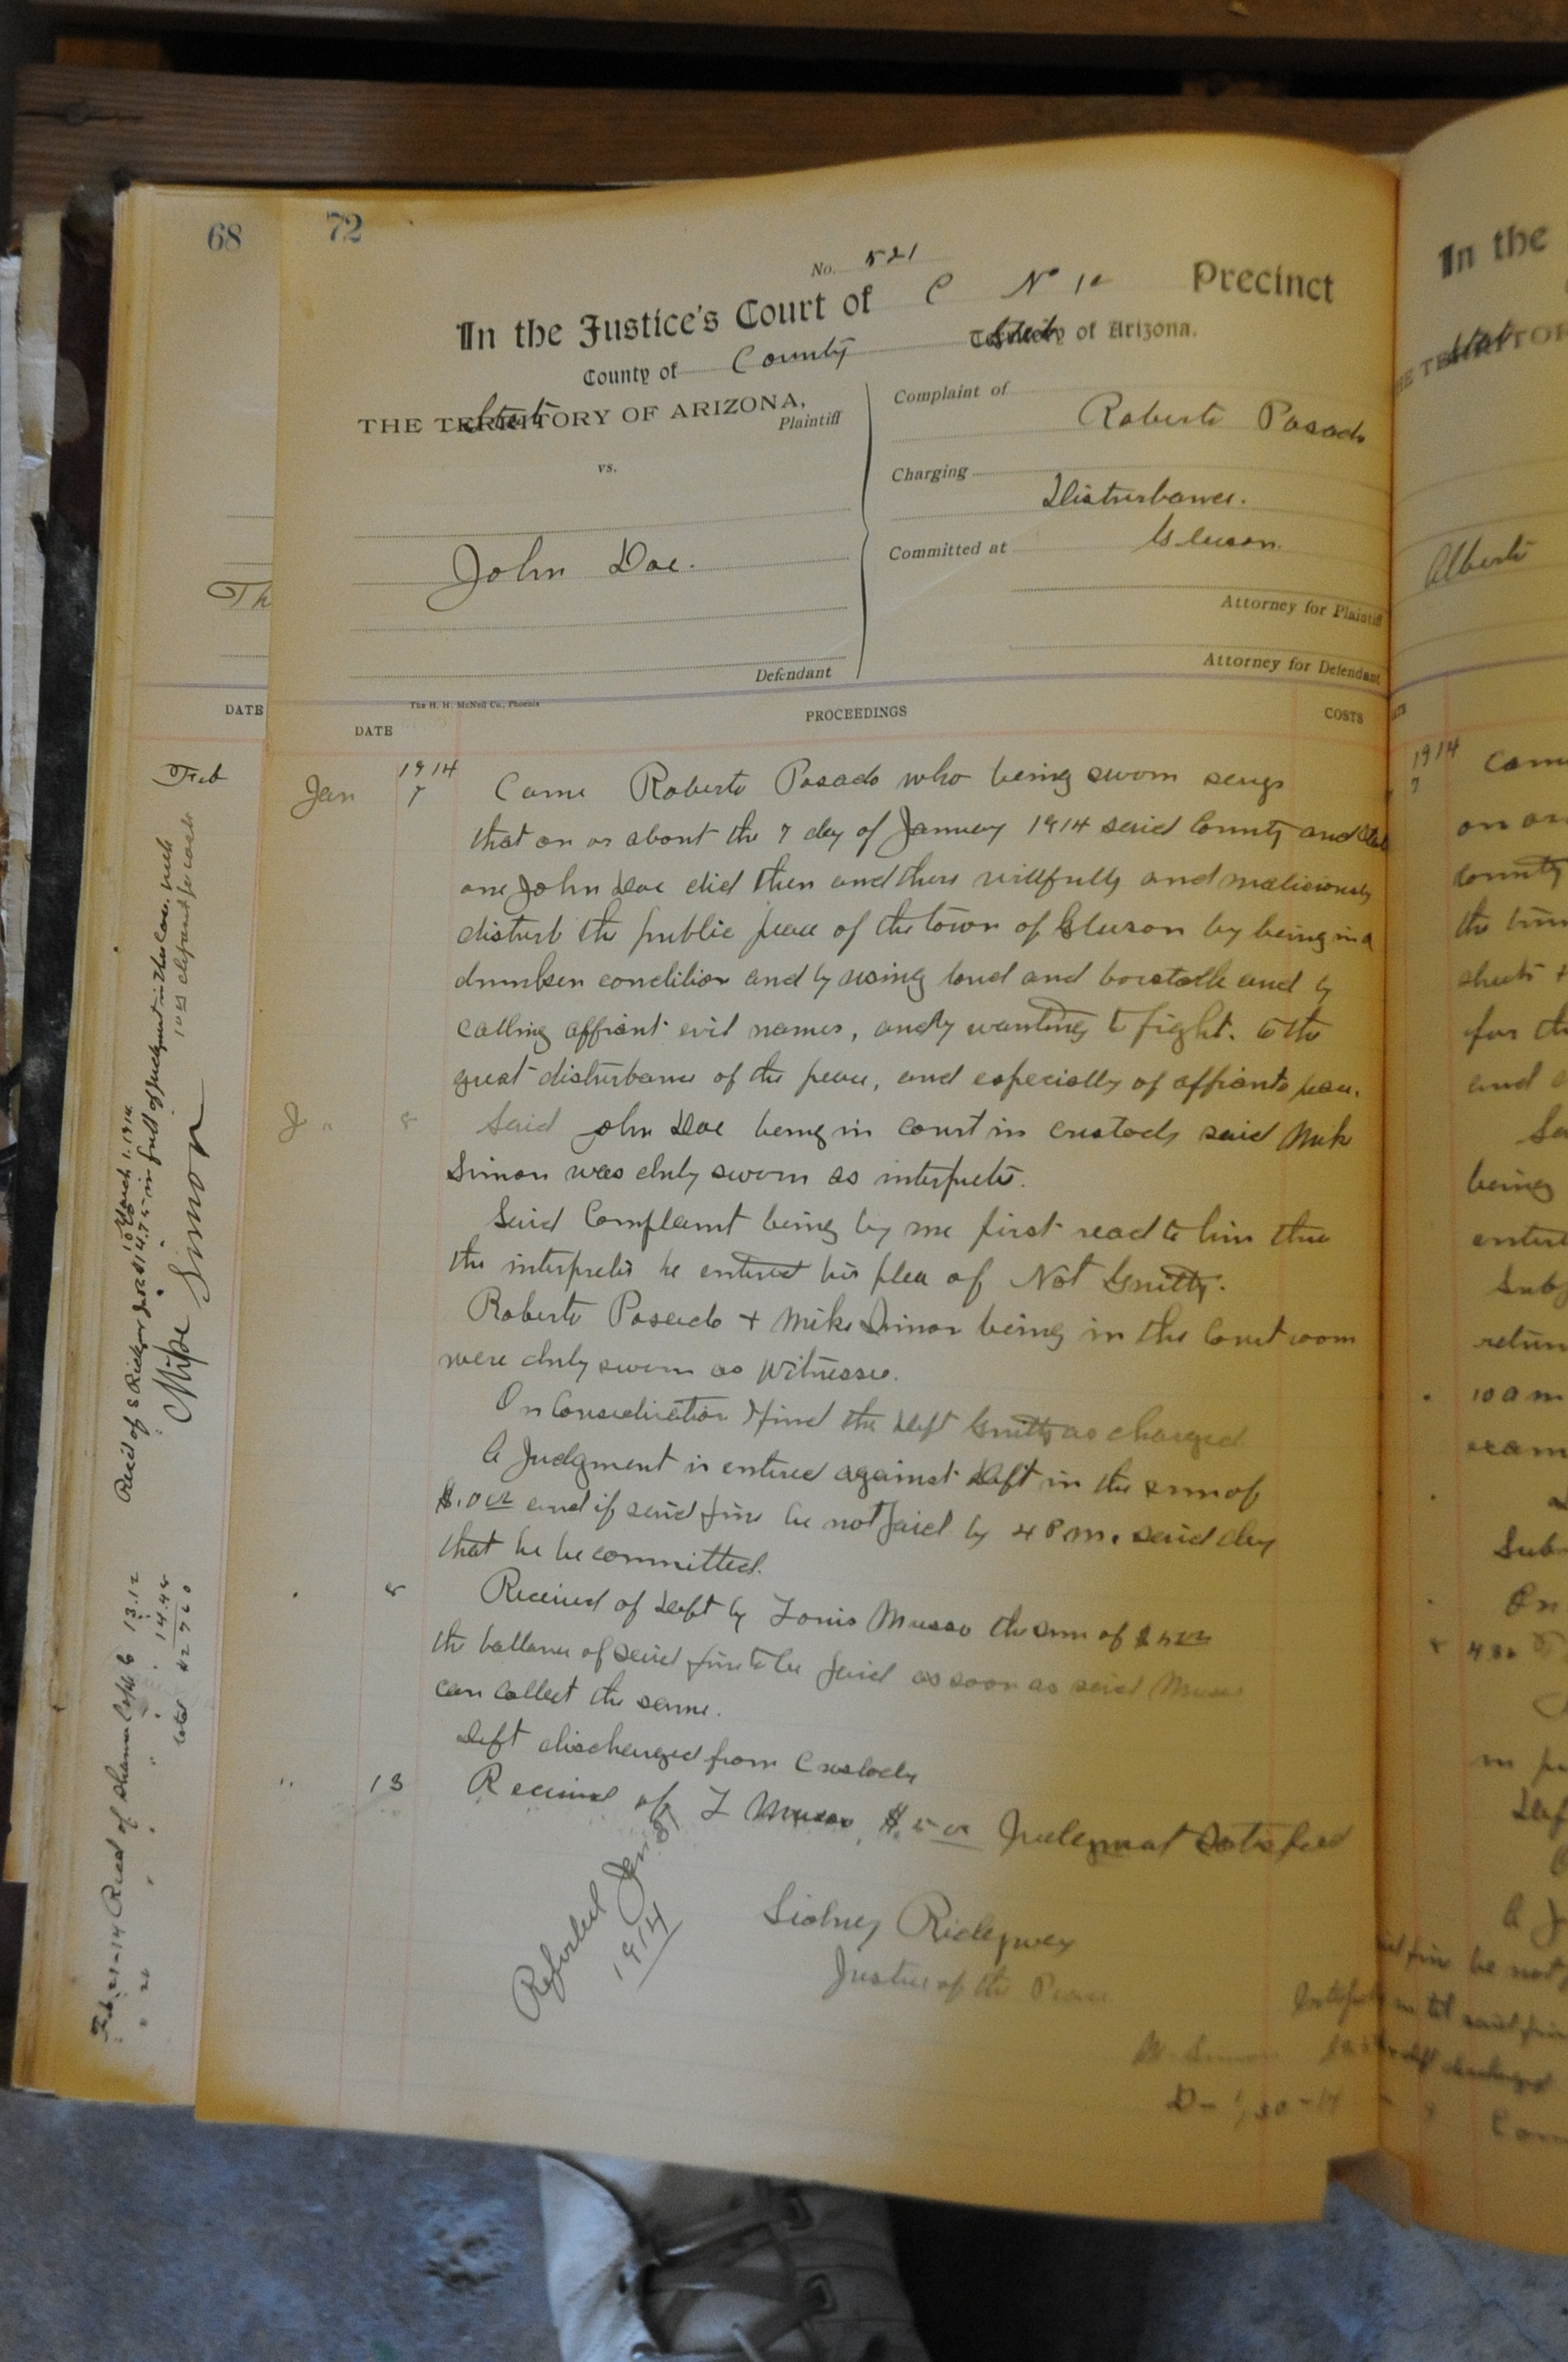 68
72
No. 521
In the Justice's Court of C No 10 Precinct
County of County State of Arizona.
THE State OF ARIZONA,
Plaintiff
vs.
John Doe.
Defendant
Complaint of
Roberto Posado
Charging
Disturbance.
Committed at Gleeson
Attorney for Plaintiff
Attorney for Defendant
The H. H. McNeil Co., Phoenix
DATE PROCEEDINGS COSTS
Jan 1914
7 Came Roberto Posado who being sworn says
that on or about the 7 day of January 1914 said County and State
one John Doe did then and there willfully and maliciously
disturb the public peace of the town of Gleeson by being in a
drunken condition and by using loud and and by
calling affiant evil names, and by wanting to fight. to the
great disturbance of the peace, and especially of affiants peace.
J " 8 Said John Doe being in court in custody said Mike
Simon was duly sworn as interpreter.
Said Complaint being by me first read to him thru
the interpreter he entered his plea of Not Guilty.
Roberto Posado + Mike Simon being in the Court room
were duly sworn as Witnesses.
On Consideration I find the Deft Guilty as charged
A Judgment is entered against Deft in the sum of
$10 00 and if said fine be not paid by 4 P m. said day
that he be committed.
" 8 Received of Deft by Louis Musso the sum of $5 00
the ballance of said fine to be paid as soon as said Musso
can collect the same.
Deft discharged from Custody
" 13 Received of L Musso $5 00 Judgment Satisfied
Reported Jan 31
1914
Sidney Ridgway
Justice of the Peace
M. Simon
D - 1/30 - 14
DATE
Feb
Th
March 1. 1914
in full of judgment in this case.
Mike Simon
13.12
14.48
total $27 60
In the
Alberto
1914
7 Came
on or
County
the
for th
and
being
10 a m
Sub
On
4 30
A J
fine be not